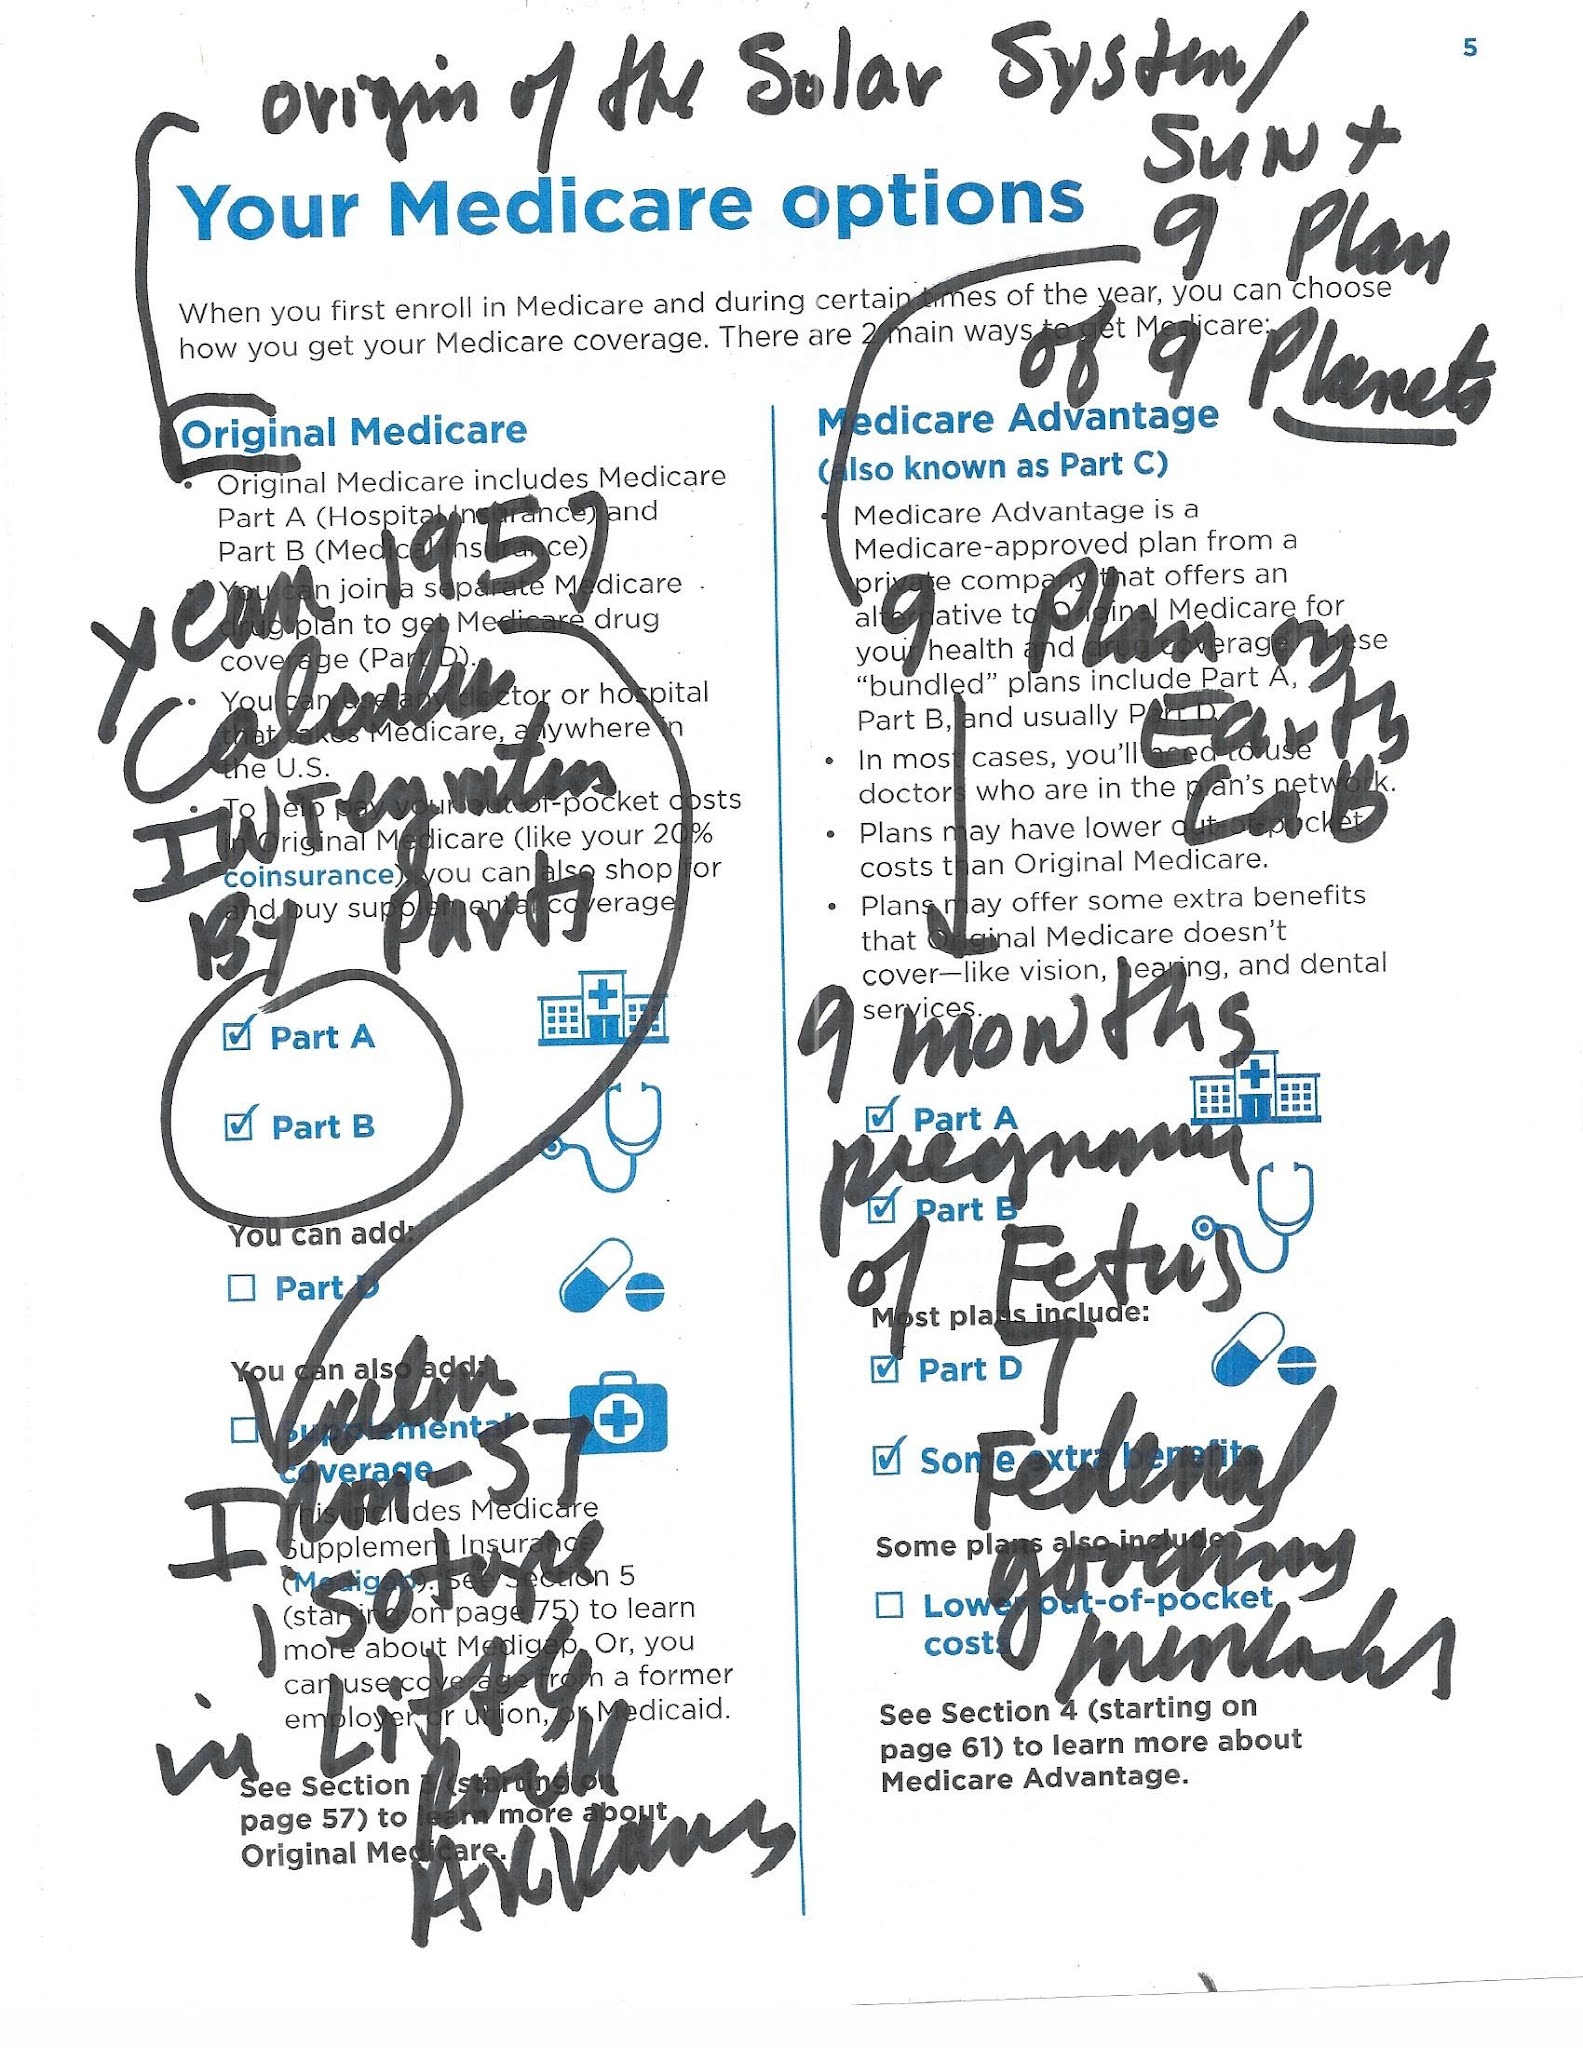 5
origin of the Solar System/
SUN +
9 Plan
of 9 Planets
Your Medicare options
When you first enroll in Medicare and during certain times of the year, you can choose
how you get your Medicare coverage. There are 2 main ways to get Medicare:
Original Medicare
• Original Medicare includes Medicare
Part A (Hospital Insurance) and
Part B (Medical Insurance).
• You can join a separate Medicare
drug plan to get Medicare drug
coverage (Part D).
• You can use any doctor or hospital
that takes Medicare, anywhere in
the U.S.
• To help pay your out-of-pocket costs
in Original Medicare (like your 20%
coinsurance), you can also shop for
and buy supplemental coverage.
Year 1957
Calculus
INTegration
By parts
Part A
Part B
You can add:
Part D
You can also add:
Supplemental
coverage
This includes Medicare
Supplement Insurance
(Medigap). See Section 5
(starting on page 75) to learn
more about Medigap. Or, you
can use coverage from a former
employer or union, or Medicaid.
-57
Isotope
in Little
Rock
Arkansas
See Section 3 (starting on
page 57) to learn more about
Original Medicare.
Medicare Advantage
(also known as Part C)
• Medicare Advantage is a
Medicare-approved plan from a
private company that offers an
alternative to Original Medicare for
your health and drug coverage. These
“bundled” plans include Part A,
Part B, and usually Part D.
• In most cases, you’ll need to use
doctors who are in the plan’s network.
• Plans may have lower out-of-pocket
costs than Original Medicare.
• Plans may offer some extra benefits
that Original Medicare doesn’t
cover—like vision, hearing, and dental
services.
9 Plan
Earths
LaB
9 months
pregnancy
of Fetus
Federal
Part A
Part B
Most plans include:
Part D
Some extra benefits
Some plans also include:
Lower out-of-pocket
costs
See Section 4 (starting on
page 61) to learn more about
Medicare Advantage.